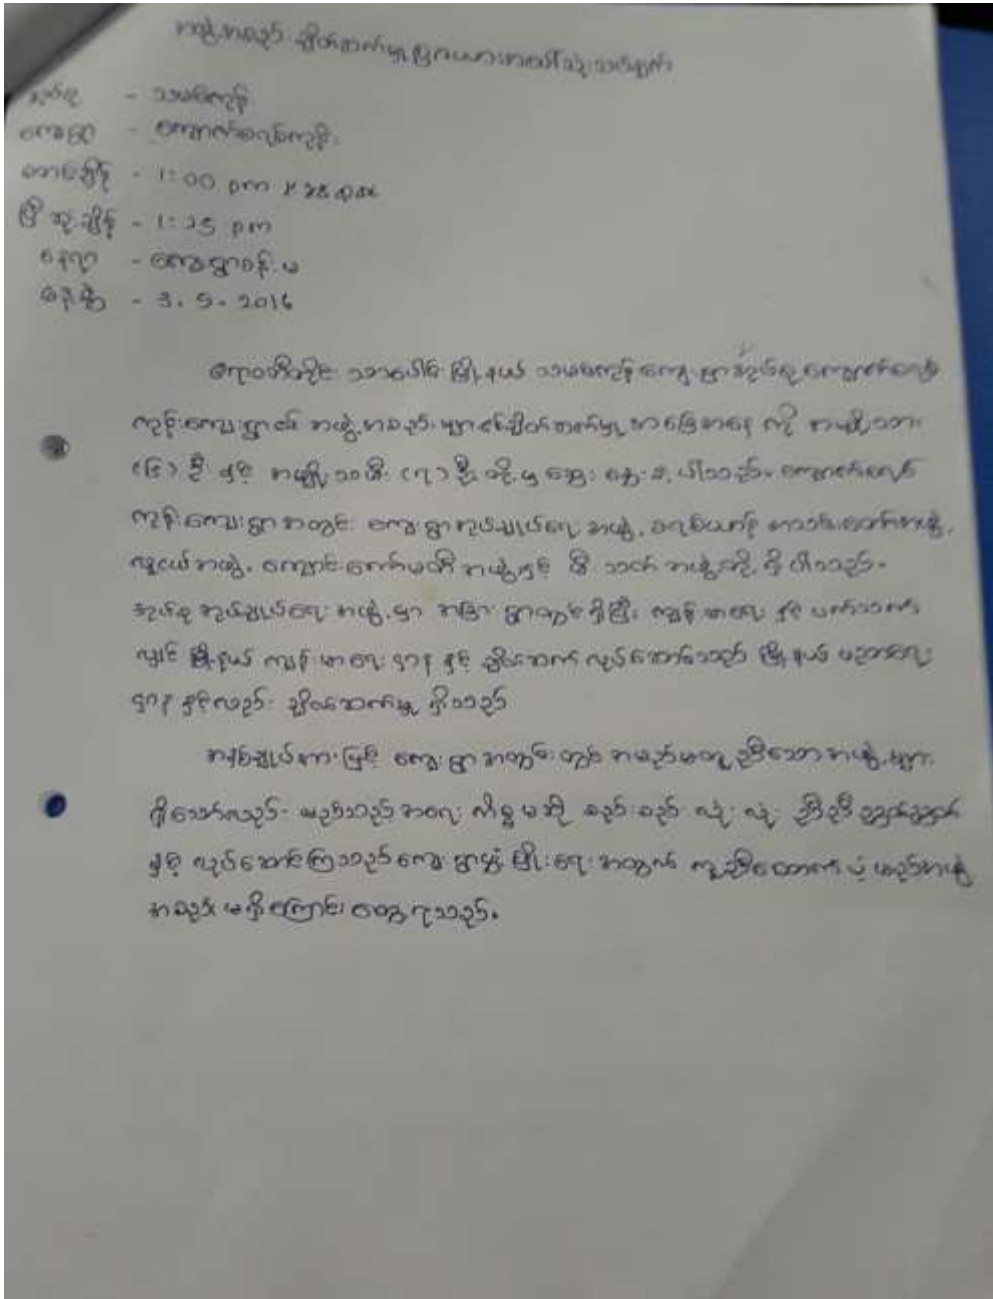 အဖွဲ့အစည်း ချိတ်ဆက်မှုပြကားအပေါ်သုံးသပ်ချက်
အုပ်စု - သမဝကုန်း
ကျေးရွာ - ကျောက်စလစ်ကုန်း
စတင်ချိန် - 1:00 pm
ပြီးဆုံးချိန် - 1:25 pm
နေရာ - ကျေးရွာစန်းမ
နေ့စွဲ - 3.5.2016
ဧရာဝတီတိုင်း သာပေါင်းမြို့နယ် ကျေးရွာအုပ်စု
ကုန်းကျေးရွာ၏ အဖွဲ့အစည်းများ၏ချိတ်ဆက်မှု အခြေအနေ ကို အမျိုးသား
ဦး နှင့် အမျိုးသမီး (၇) ဦး တို့မှ ဆွေးနွေးခဲ့ပါသည်။
ကုန်းကျေးရွာအတွင်း ကျေးရွာအုပ်ချုပ်ရေး အဖွဲ့၊
လူငယ်အဖွဲ့၊ ကျောင်းကော်မတီ အဖွဲ့နှင့် မီးသတ် အဖွဲ့တို့ ရှိပါသည်။
အုပ်စု အုပ်ချုပ်ရေး အဖွဲ့မှာ အခြားရွာတွင်ရှိပြီး ကျန်းမာရေး နှင့် ပတ်သက်
လျှင် မြို့နယ် ကျန်းမာရေး ဌာန နှင့် ချိတ်ဆက် လုပ်ဆောင်သည် မြို့နယ် ပညာရေး
ဌာန နှင့်လည်း ချိတ်ဆက်မှု ရှိသည်
အနှစ်ချုပ်အားဖြင့် ကျေးရွာအတွင်းတွင် အမည်မတူညီသော အဖွဲ့များ
ရှိသော်လည်း မည်သည့်အရေးကိစ္စမဆို စည်းစည်းလုံးလုံး ညီညီညွတ်ညွတ်
နှင့် လုပ်ဆောင်ကြသည် ကျေးရွာဖွံ့ဖြိုးရေးအတွက် ကူညီထောက်ပံ့မည့်အဖွဲ့
အစည်း မရှိကြောင်း တွေ့ရသည်။